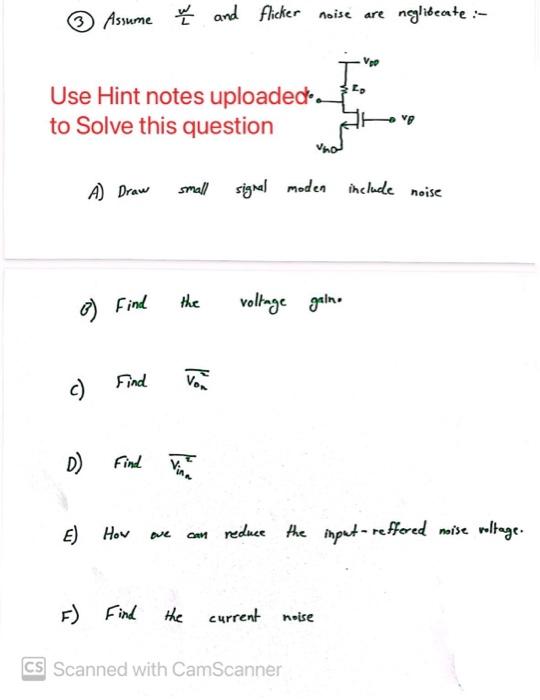 ③ Assume W/L and flicker noise are neglibeate :-
VDD
RD
Use Hint notes uploaded.
to Solve this question
VB
A) Draw small signal moden include noise
B) Find the voltage gain.
C) Find
D) Find
E) How we can reduce the input-reffered noise voltage.
F) Find the current noise
CS Scanned with CamScanner